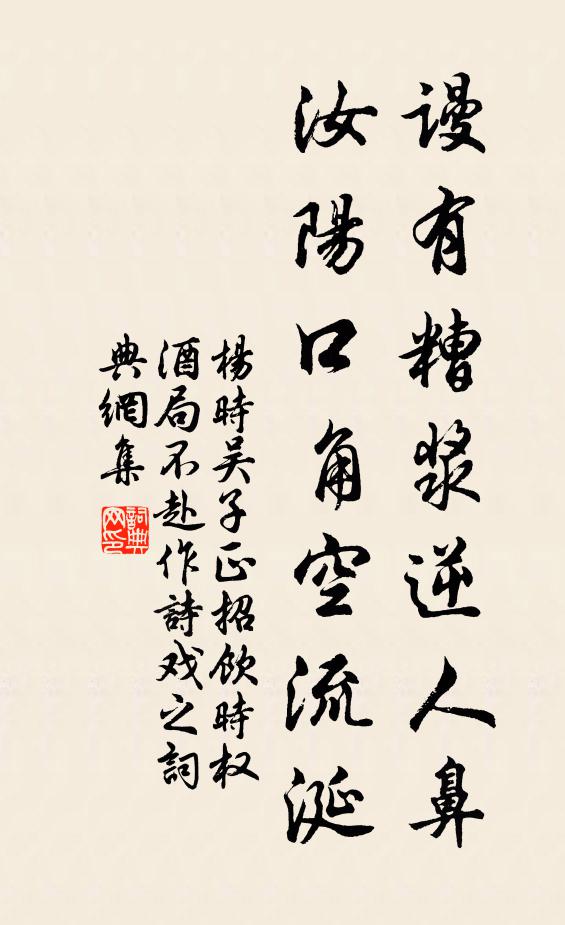 谩有糟漿逆人鼻
汝陽口角空流涎
楊時吴子正招飲時权
酒局不赴作詩戏之詞
典網集
詞典网印